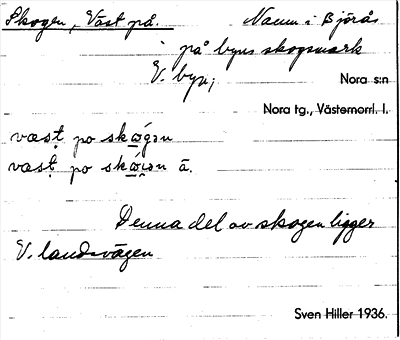 Skogen, Väst på. Namn i Björås
på byns skogsmark
V. byn;
Nora s:n
Nora tg., Västernorrl. l.
væsṭ po skǫ́gən
væsṭ po skǫ́gən ā.
Denna del av skogen ligger
V. landsvägen
Sven Hiller 1936.